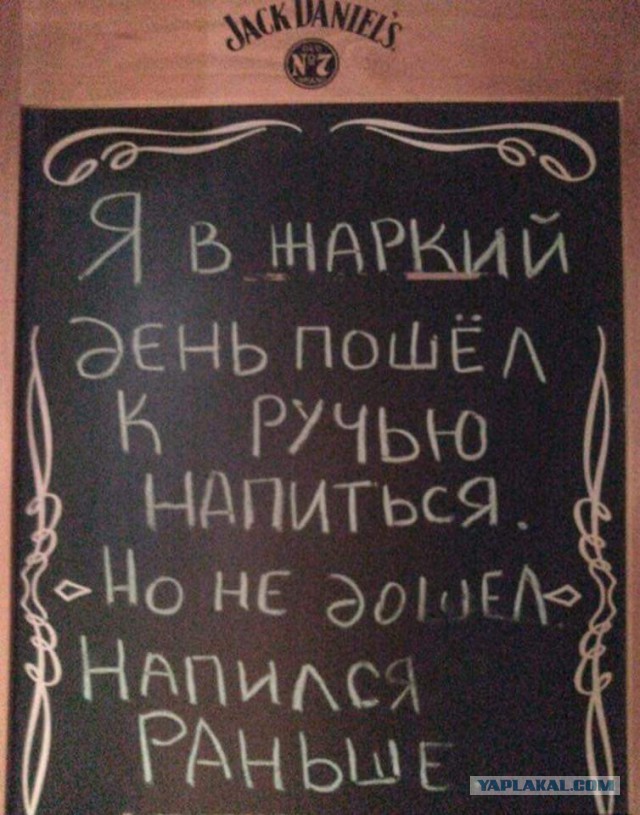 JACK DANIEL'S
OLD
Nº7
BRAND
Я В ЖАРКИЙ
ДЕНЬ ПОШЁЛ
К РУЧЬЮ
НАПИТЬСЯ.
НО НЕ ДОШЕЛ.
НАПИЛСЯ
РАНЬШЕ
YAPLAKAL.COM